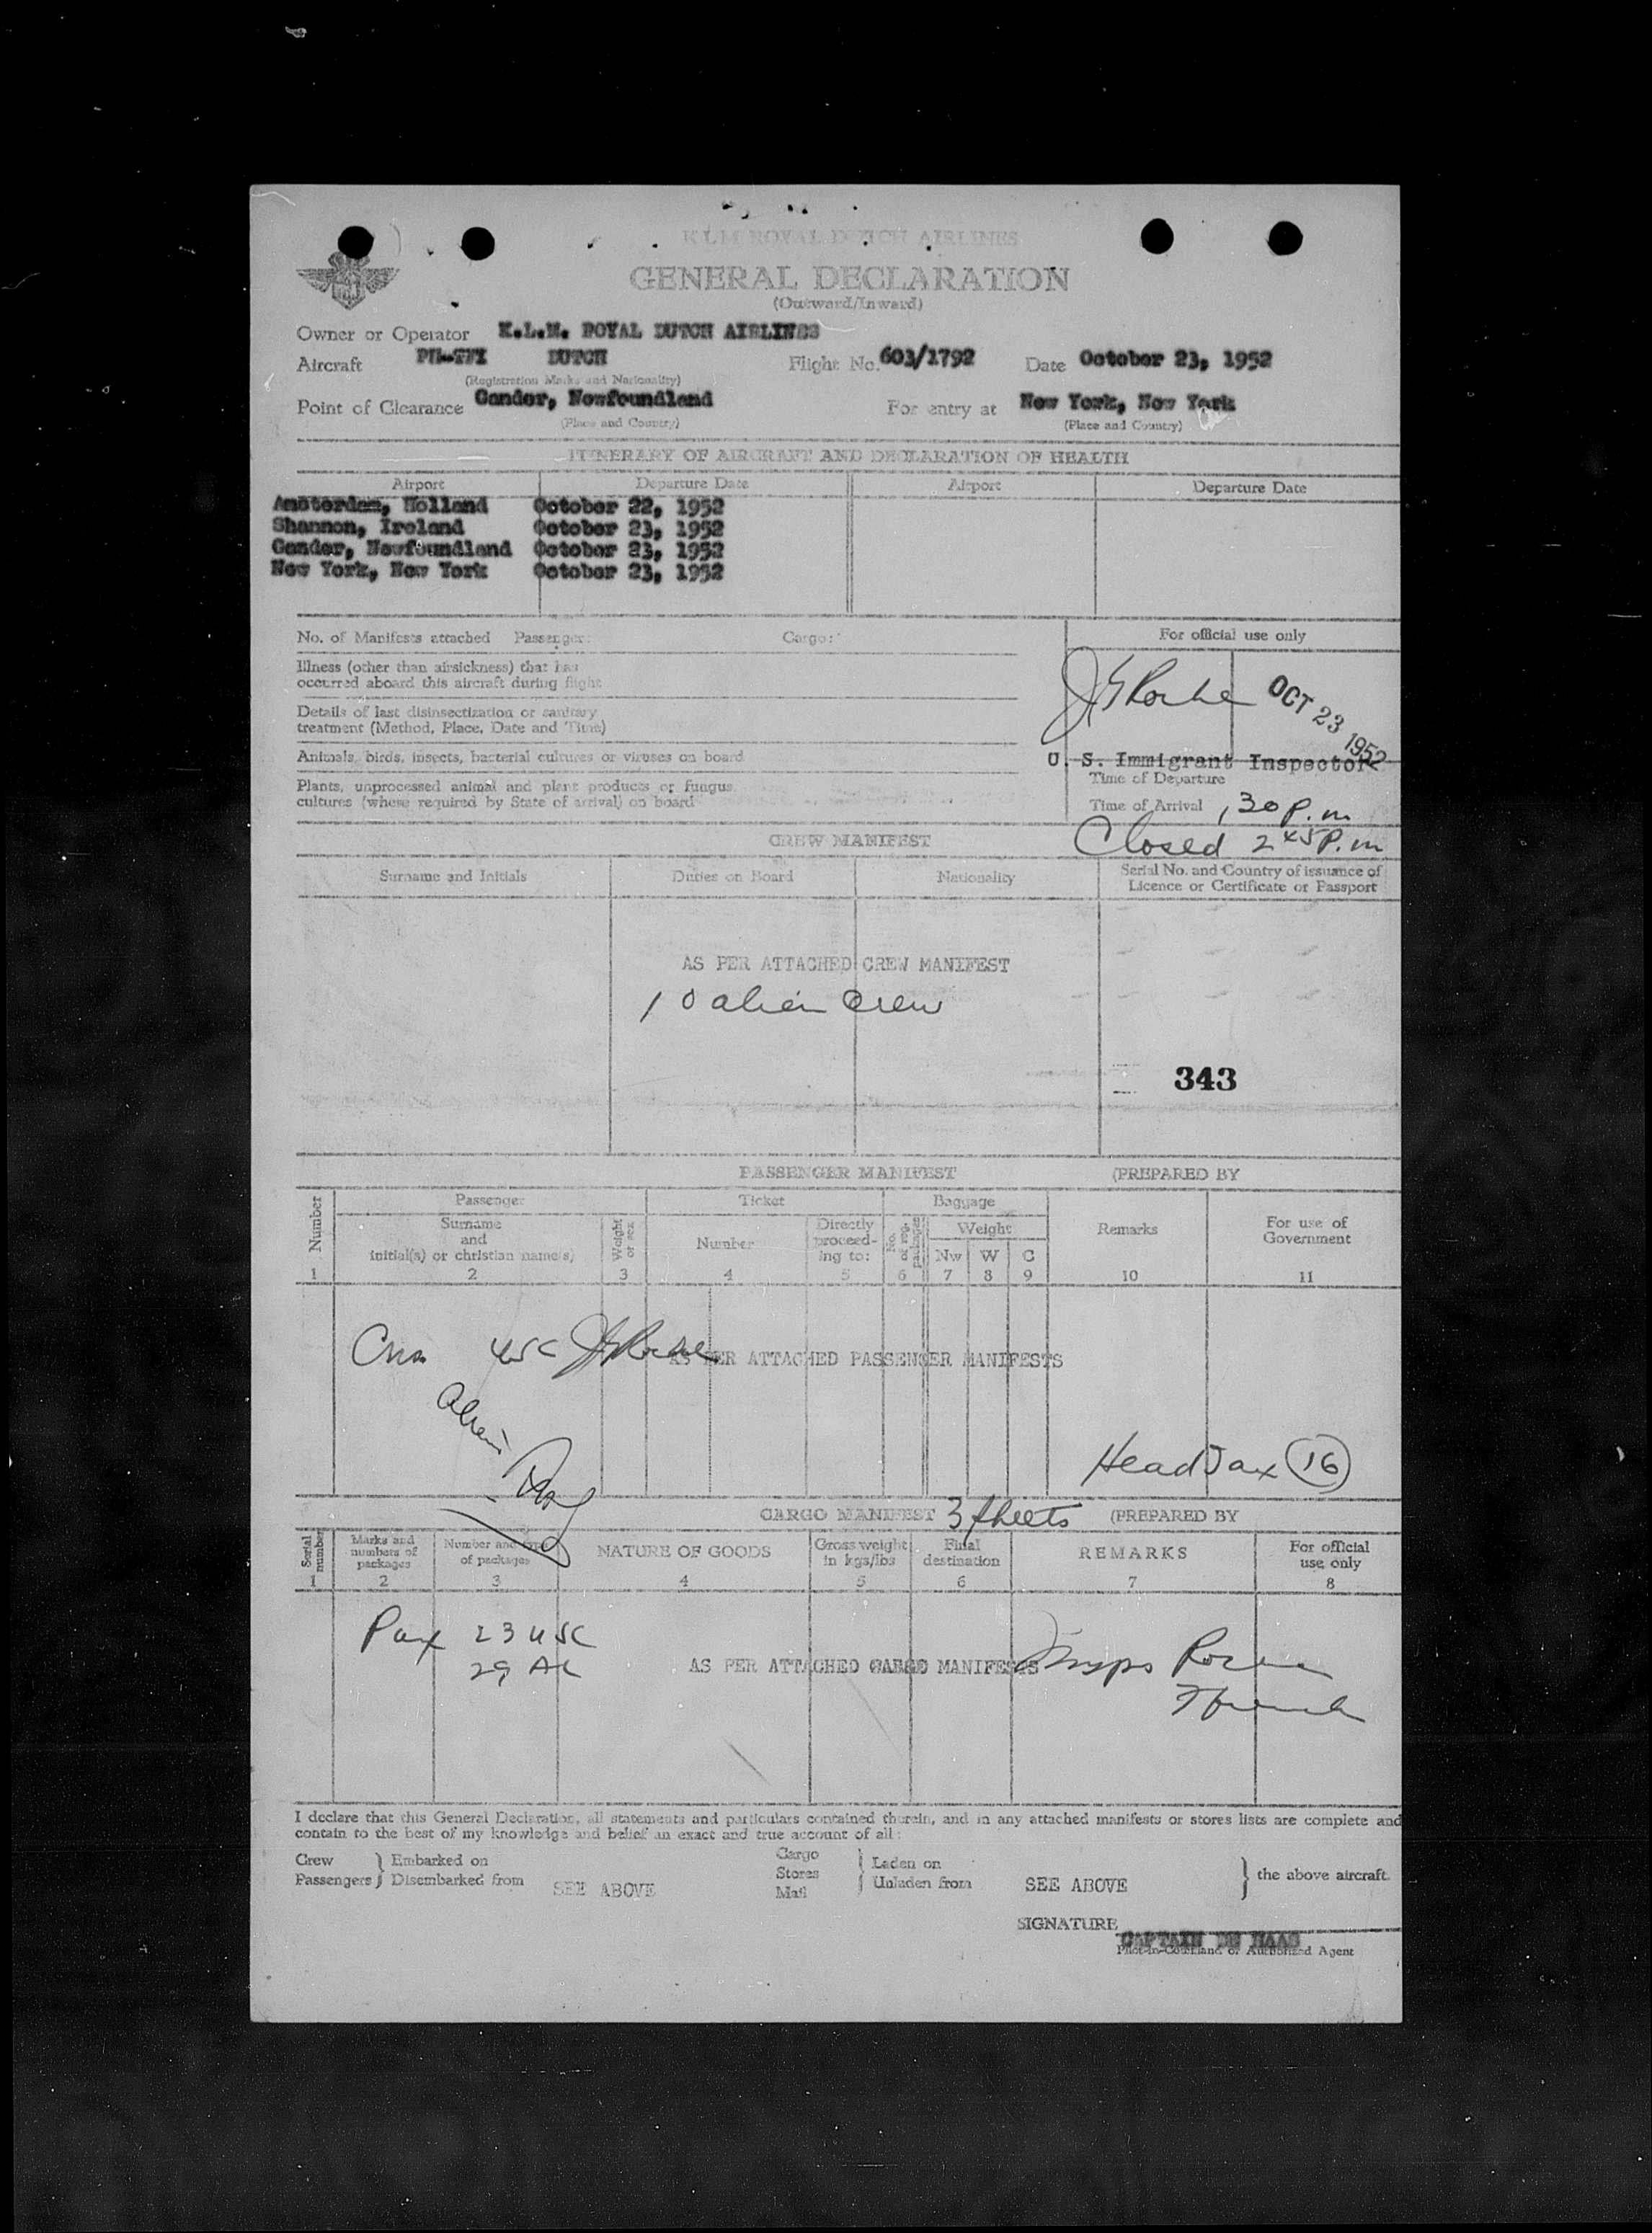 K L M ROYAL DUTCH AIRLINES
GENERAL DECLARATION
(Outward/Inward)
Owner or Operator K.L.M. ROYAL DUTCH AIRLINES
Aircraft DUTCH Flight No. 603/1792 Date October 23, 1952
(Registration Marks and Nationality)
Point of Clearance Gander, Newfoundland For entry at New York, New York
(Place and Country) (Place and Country)
ITINERARY OF AIRCRAFT AND DECLARATION OF HEALTH
Airport Departure Date Airport Departure Date
Amsterdam, Holland October 22, 1952
Shannon, Ireland October 23, 1952
Gander, Newfoundland October 23, 1952
New York, New York October 23, 1952
No. of Manifests attached Passenger: Cargo: For official use only
Illness (other than airsickness) that has
occurred aboard this aircraft during flight
Details of last disinsectization or sanitary
treatment (Method, Place, Date and Time)
OCT 23 1952
Animals, birds, insects, bacterial cultures or viruses on board
U. S. Immigrant Inspector
Plants, unprocessed animal and plant products or fungus
cultures (where required by State of arrival) on board
Time of Departure
Time of Arrival 1,30 P.m
Closed 2 45 P.m
CREW MANIFEST
Surname and Initials Duties on Board Nationality Serial No. and Country of issuance of
Licence or Certificate or Passport
AS PER ATTACHED CREW MANIFEST
10 alien crew
343
PASSENGER MANIFEST (PREPARED BY
Number Passenger Ticket Baggage Remarks For use of
Government
Surname
and
initial(s) or christian name(s) Weight
or sex Number Directly
proceed-
ing to: No.
of reg.
packages Weight
Nw W C
1 2 3 4 5 6 7 8 9 10 11
USC
AS PER ATTACHED PASSENGER MANIFESTS
alien
Head Tax 16
CARGO MANIFEST 3 sheets (PREPARED BY
Serial
number Marks and
numbers of
packages Number and type
of packages NATURE OF GOODS Gross weight
in kgs/lbs Final
destination REMARKS For official
use only
1 2 3 4 5 6 7 8
Pax 23 USC
29 AL
AS PER ATTACHED CARGO MANIFESTS
I declare that this General Declaration, all statements and particulars contained therein, and in any attached manifests or stores lists are complete and
contain to the best of my knowledge and belief an exact and true account of all:
Crew
Passengers } Embarked on
Disembarked from SEE ABOVE
Cargo
Stores
Mail } Laden on
Unladen from SEE ABOVE } the above aircraft.
SIGNATURE
CAPTAIN DE HAAS
Pilot-in-Command or Authorized Agent